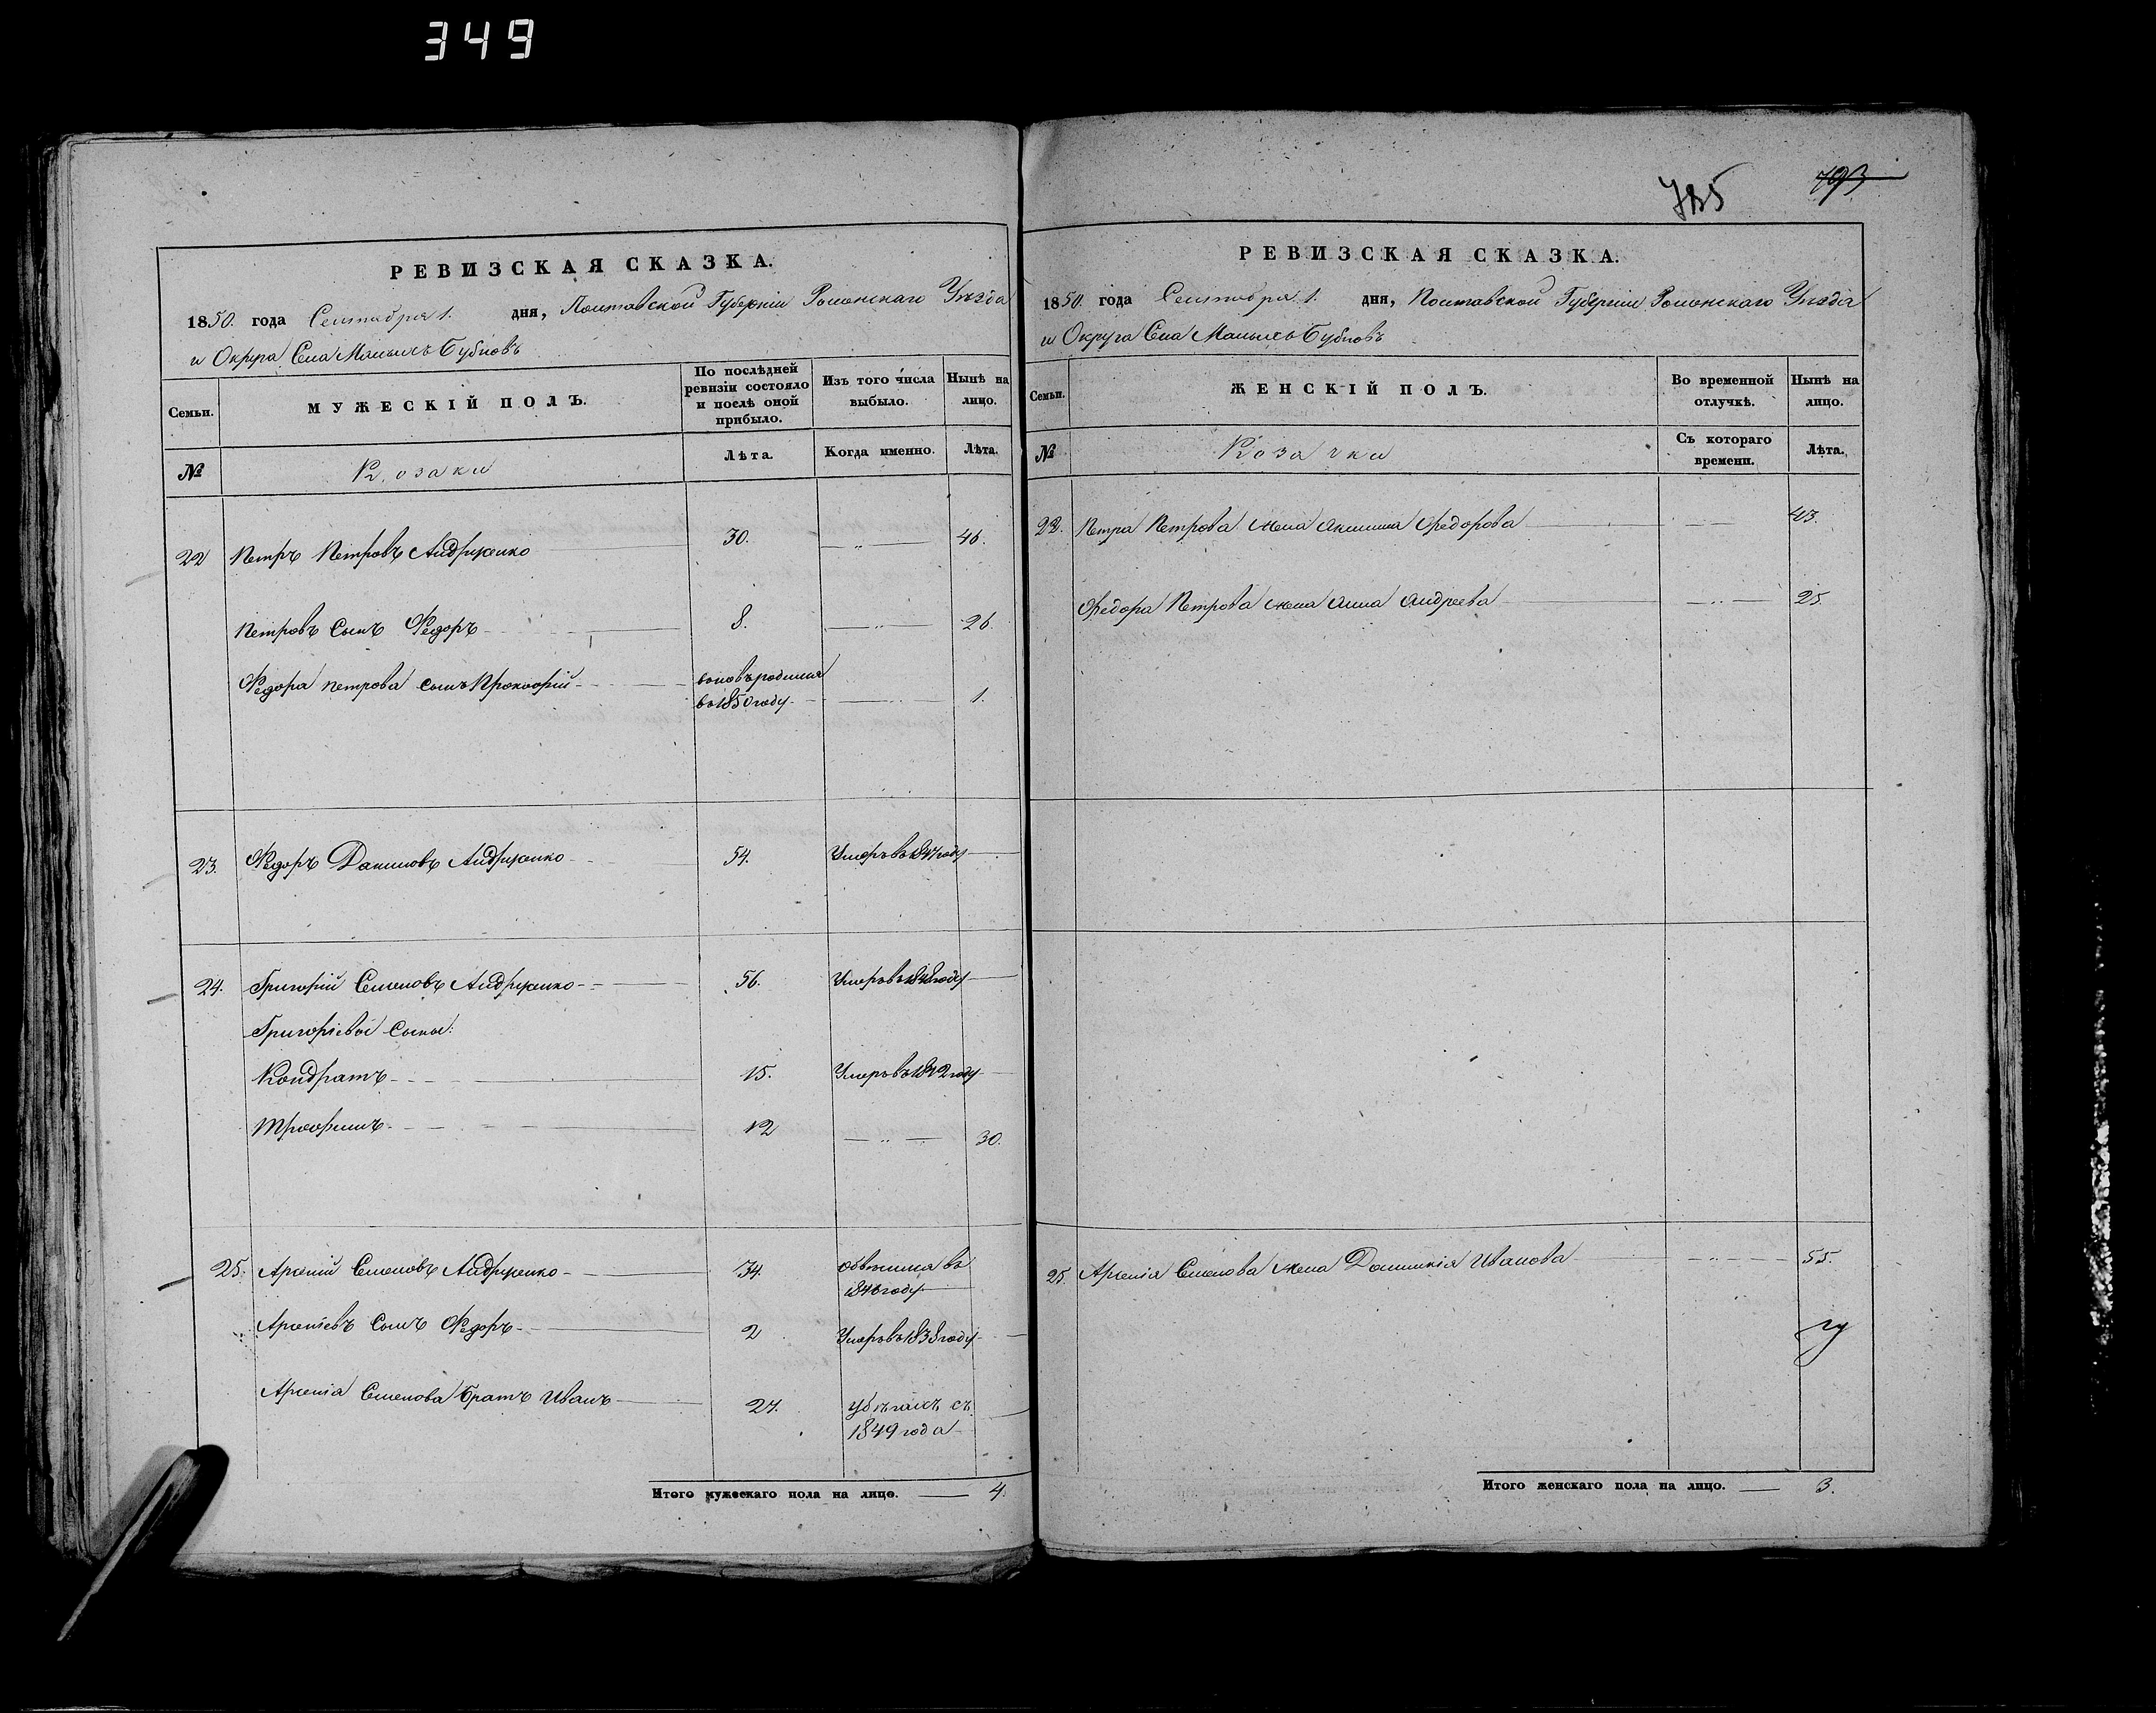 349
725
793
РЕВИЗСКАЯ СКАЗКА.
1850. года Сентября 1. дня, Полтавской Губерніи Роменскаго Уѣзда
и Округа Села Малыхъ Бубновъ
Семьи.
МУЖЕСКІЙ ПОЛЪ.
По послѣдней ревизіи состояло и послѣ оной прибыло.
Изъ того числа выбыло.
Нынѣ на лицо.
№
Козаки
Лѣта.
Когда именно.
Лѣта.
22 Петръ Петровъ Андрущенко 30. — „ — 46.
Петровъ Сынъ Федоръ 8. — „ — 26.
Федора Петрова сынъ Прокофій вновь родился
в 1850 году — „ — 1.
23. Федоръ Даниловъ Андрущенко 54. Умеръ въ 1847 году —
24. Григорій Семеновъ Андрущенко 56. Умеръ въ 1848 году —
Григоріевы Сыны:
Кондратъ 15. Умеръ въ 1842 году —
Трофимъ 12 — „ — 30.
25. Арсеній Семеновъ Андрущенко 34. въ
1846 году
Арсеніевъ Сынъ Федоръ 2 Умеръ въ 1838 году —
Арсенія Семенова братъ Иванъ 27. въ бѣгахъ съ
1849 года
Итого мужескаго пола на лицо. — 4.
РЕВИЗСКАЯ СКАЗКА.
1850. года Сентября 1. дня, Полтавской Губерніи Роменскаго Уѣзда
и Округа Села Малыхъ Бубновъ
Семьи.
ЖЕНСКІЙ ПОЛЪ.
Во временной отлучкѣ.
Нынѣ на лицо.
№
Козачки
Съ котораго времени.
Лѣта.
22. Петра Петрова жена Акилина Федорова — „ — 43.
Федора Петрова жена Анна Андреева — „ — 25.
25. Арсенія Семенова жена Домникія Иванова — „ — 55.
Итого женскаго пола на лицо. — 3.